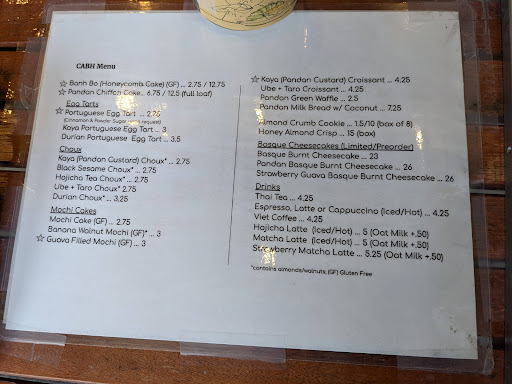 CABH Menu
☆ Banh Bo (Honeycomb Cake) (GF) ... 2.75 / 12.75
☆ Pandan Chiffon Cake... 6.75 / 12.5 (full loaf)
Egg Tarts
☆ Portuguese Egg Tart ... 2.75
(Cinnamon & Powder Sugar upon request)
Kaya Portuguese Egg Tart ... 3
Durian Portuguese Egg Tart ... 3.5
Choux
Kaya (Pandan Custard) Choux* ... 2.75
Black Sesame Choux* ... 2.75
Hojicha Tea Choux* ... 2.75
Ube + Taro Choux* 2.75
Durian Choux* ... 3.25
Mochi Cakes
Mochi Cake (GF) ... 2.75
Banana Walnut Mochi (GF)* ... 3
☆ Guava Filled Mochi (GF) ... 3
☆ Kaya (Pandan Custard) Croissant ... 4.25
Ube + Taro Croissant ... 4.25
Pandan Green Waffle ... 2.5
Pandan Milk Bread w/ Coconut ... 7.25
Almond Crumb Cookie ... 1.5/10 (box of 8)
Honey Almond Crisp ... 15 (box)
Basque Cheesecakes (Limited/Preorder)
Basque Burnt Cheesecake ... 23
Pandan Basque Burnt Cheesecake ... 26
Strawberry Guava Basque Burnt Cheesecake ... 26
Drinks
Thai Tea ... 4.25
Espresso, Latte or Cappuccino (Iced/Hot) ... 4.25
Viet Coffee ... 4.25
Hojicha Latte (Iced/Hot) ... 5 (Oat Milk +.50)
Matcha Latte (Iced/Hot) ... 5 (Oat Milk +.50)
Strawberry Matcha Latte ... 5.25 (Oat Milk +.50)
*contains almonds/walnuts; (GF) Gluten Free